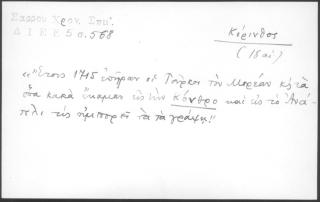 Σερρῶν Χρον. Σπυ.
Δ Ι Ε Ε 5 σ. 568
Κόρινθος
(18 αἰ)
«Ἔτους 1715 ἐπῆραν οἱ Τοῦρκοι τὸν Μορέαν κὶ τὰ
ὅσα κακὰ ἔκαμαν εἰς τὴν Κόνθρο καὶ εἰς τὸ Ἀνά-
πλι τίς ἠμπορεῖ νὰ τὰ γράψῃ!!